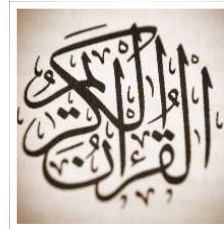 القُرآنُ الكَرِيم